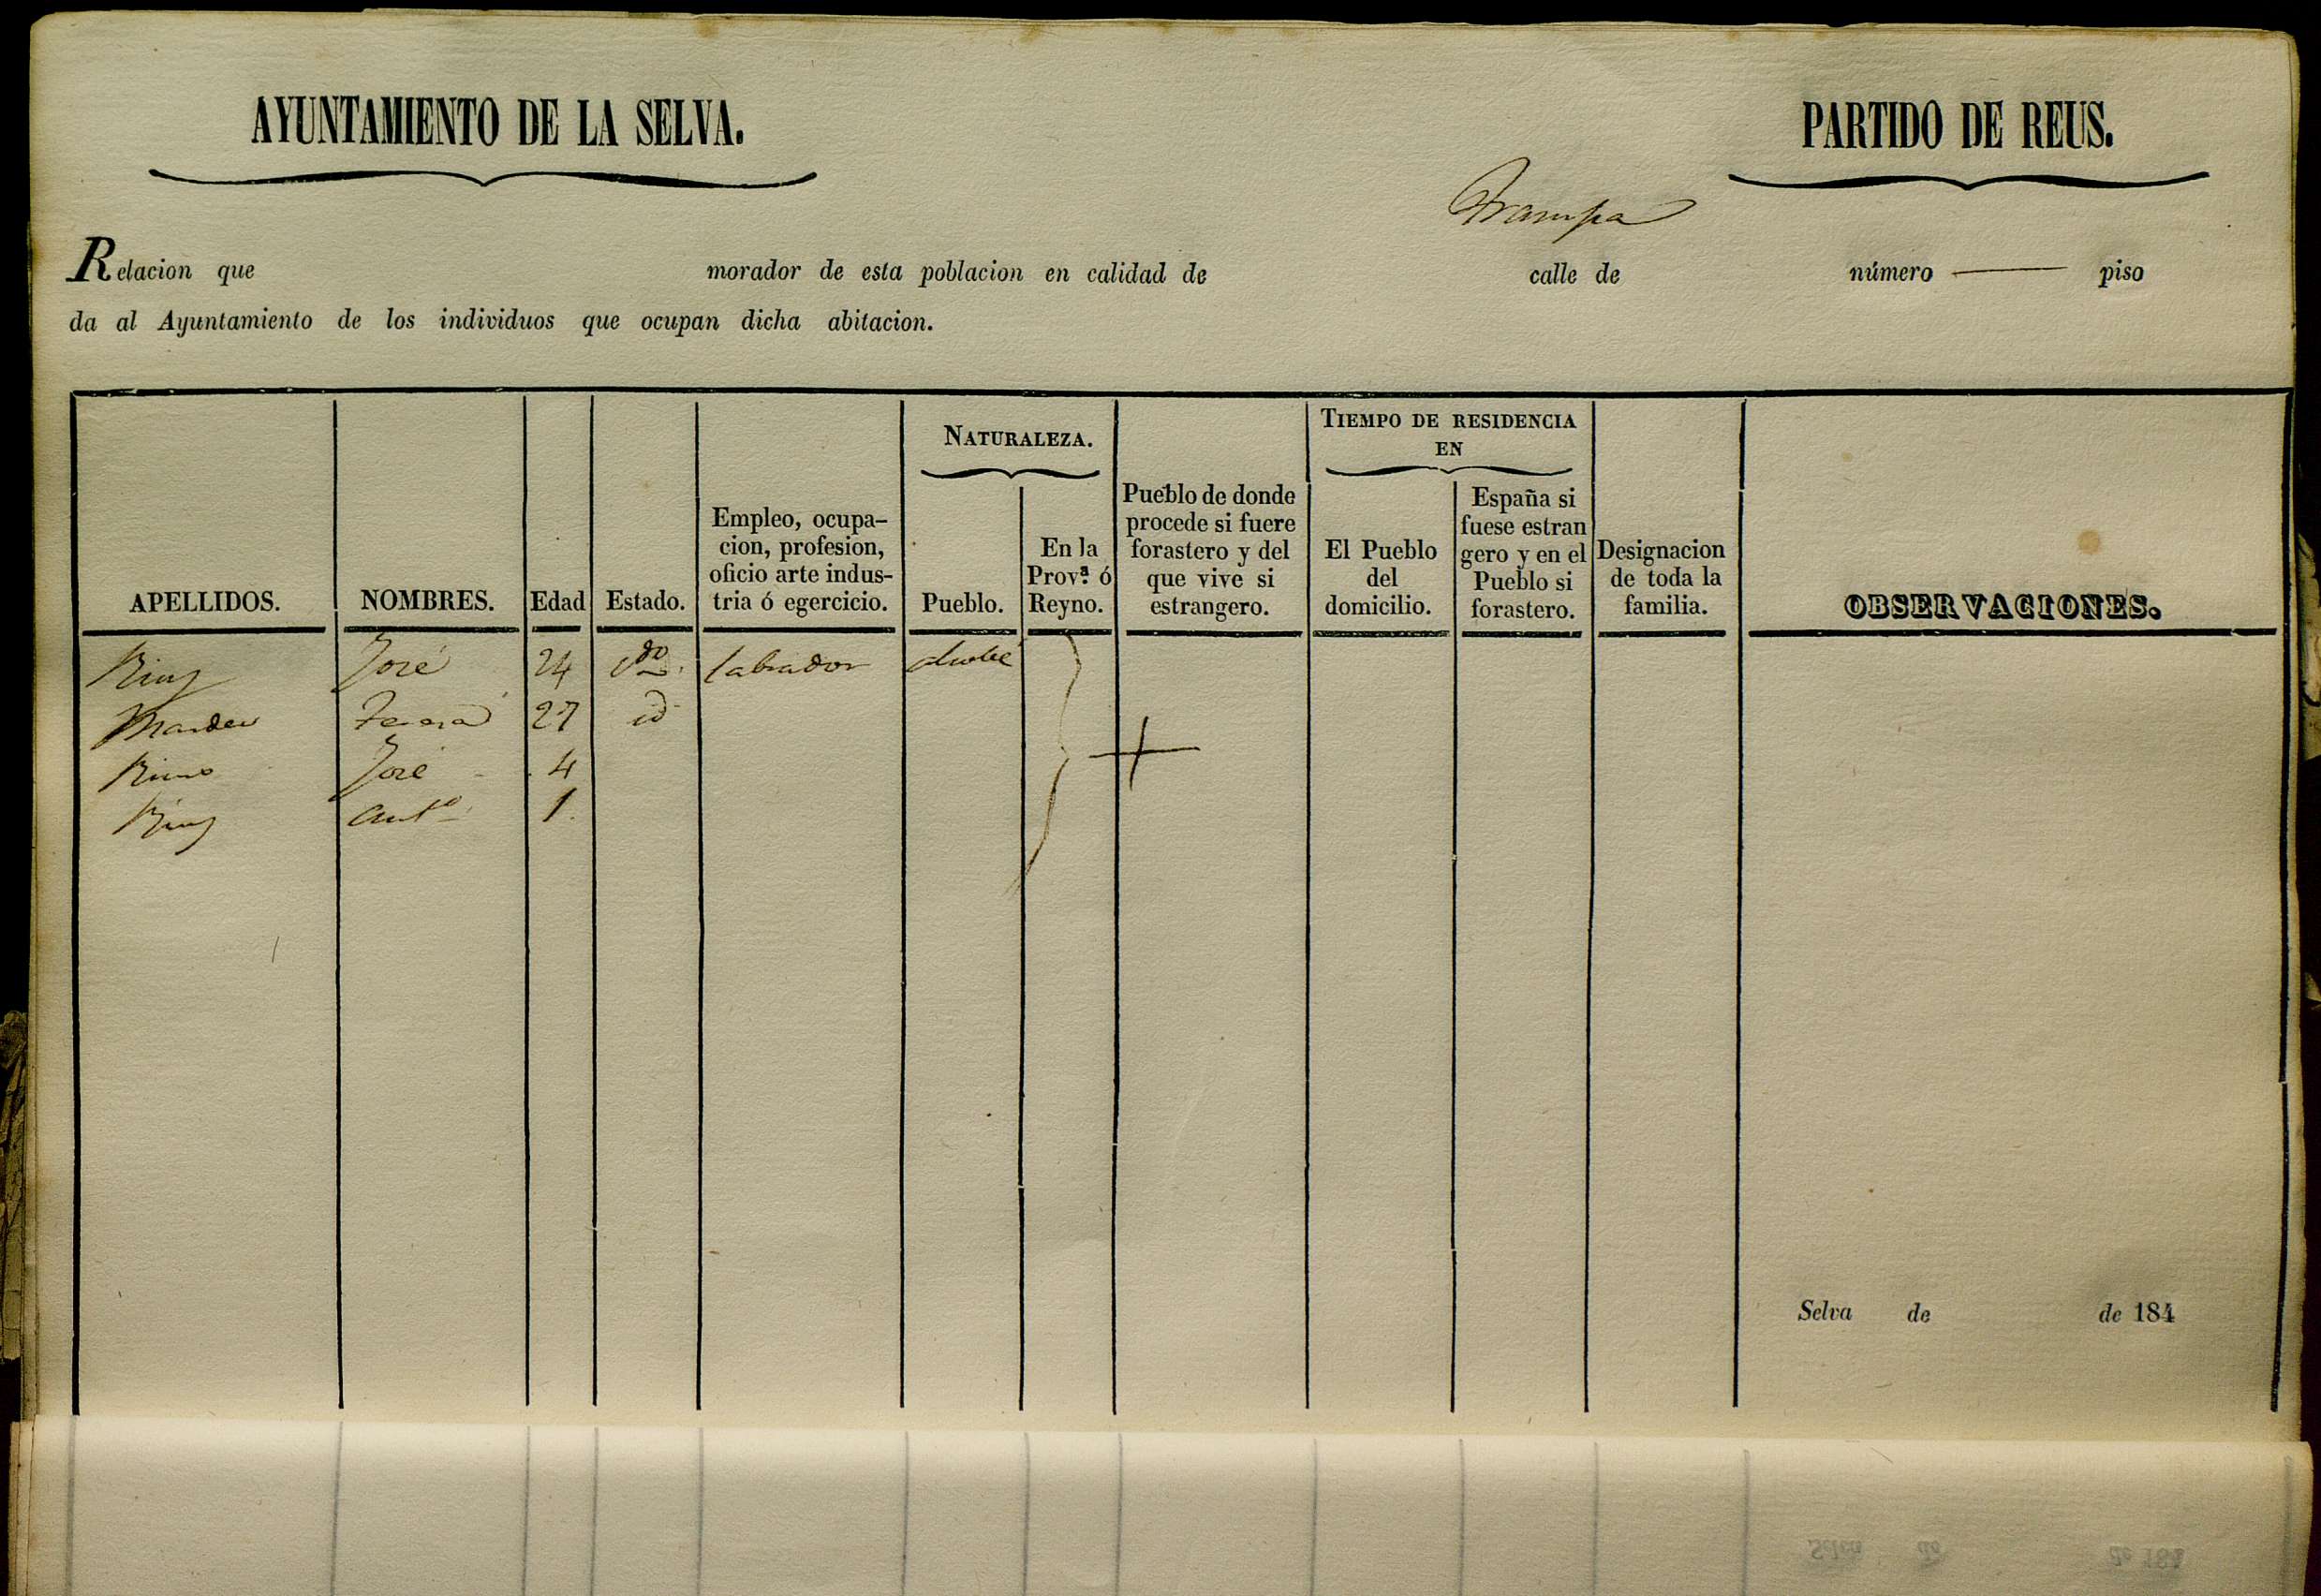 AYUNTAMIENTO DE LA SELVA.
PARTIDO DE REUS.
Trampa
Relacion que morador de esta poblacion en calidad de calle de número — piso
da al Ayuntamiento de los individuos que ocupan dicha abitacion.
APELLIDOS.
NOMBRES.
Edad
Estado.
Empleo, ocupa-
cion, profesion,
oficio arte indus-
tria ó egercicio.
NATURALEZA.
Pueblo.
En la
Prov.ª ó
Reyno.
Pueblo de donde
procede si fuere
forastero y del
que vive si
estrangero.
TIEMPO DE RESIDENCIA
EN
El Pueblo
del
domicilio.
España si
fuese estran
gero y en el
Pueblo si
forastero.
Designacion
de toda la
familia.
OBSERVACIONES.
José 24 labrador
27 id
José 4
Antº 1
Selva de de 184